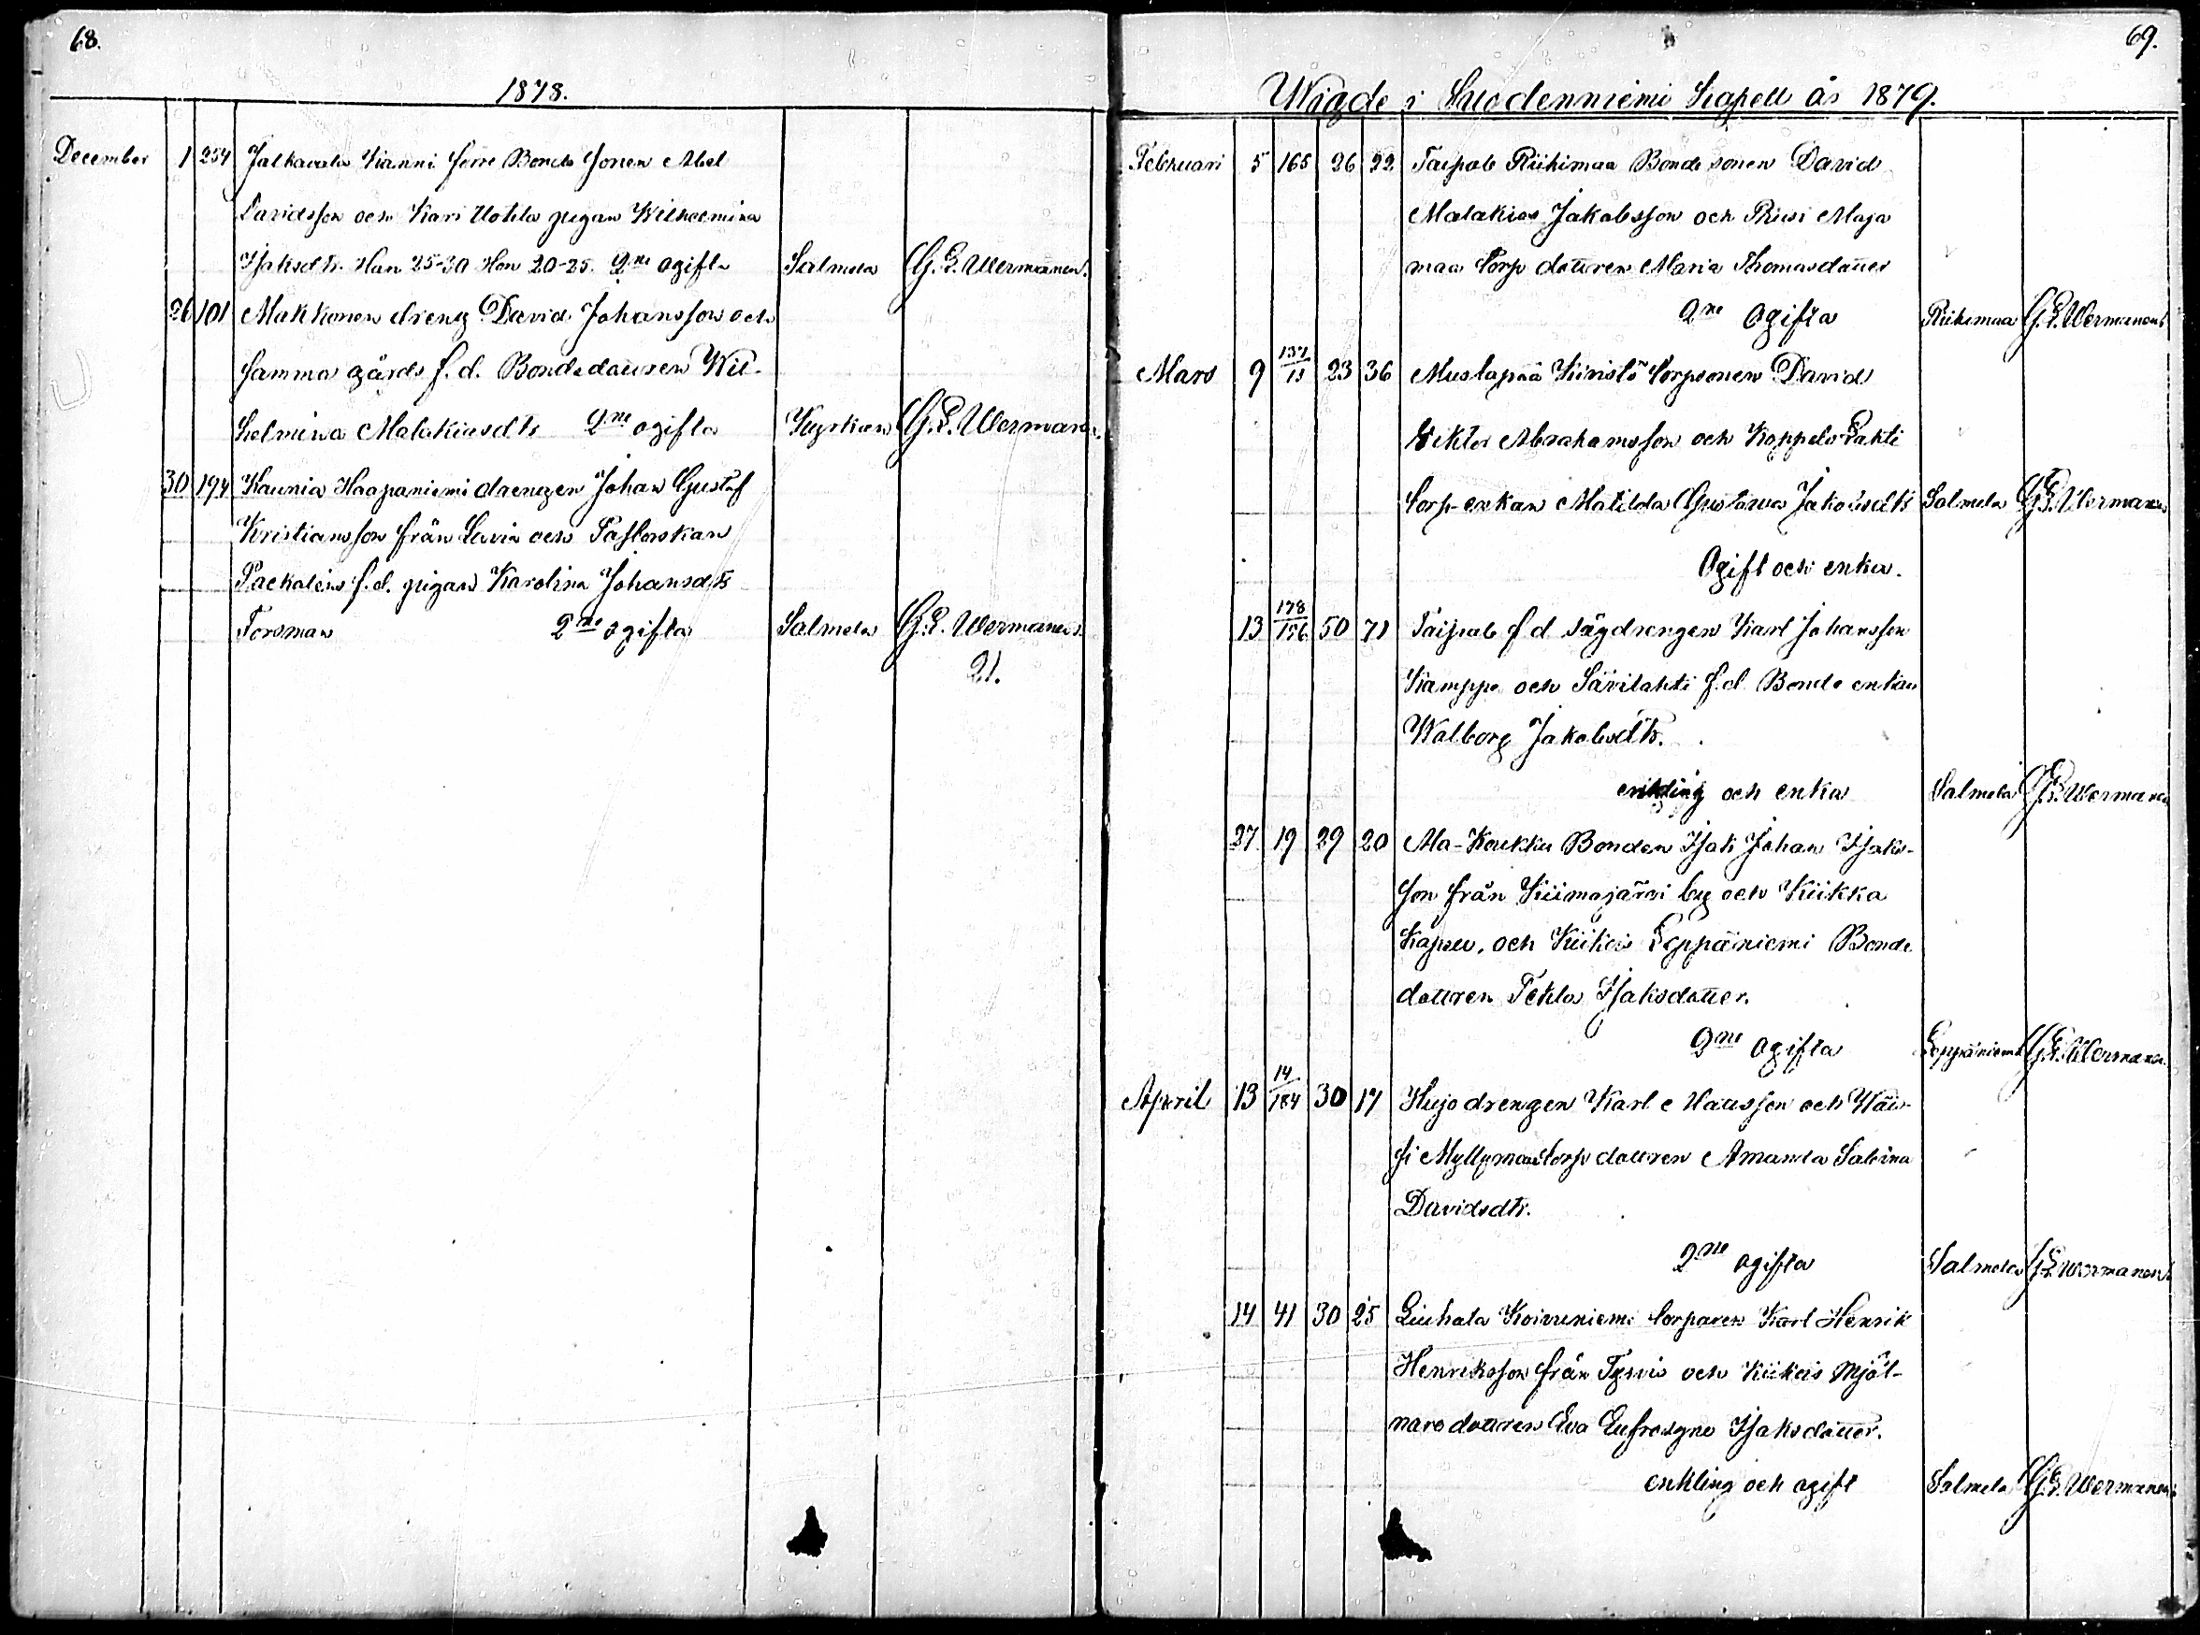 68.
1878.
December 1 254 Jalkavala Kianni förre Bonde sonen Abel
Davidsson och Kari Uotila pigan Wilhelmina
Isaksdtr. Han 25-30 Hon 20-25. 2ne ogifta Salmela G. E. Wermanen.
26 101 Makkonen dreng David Johansson och
samma gårds f. d. Bondedottren Wil-
helmina Malakiasdtr 2ne ogifta G. E. Werman
30 194 Kaunia Haapaniemi drengen Johan Gustaf
Kristiansson från Lavia och
f. d. pigan Karolina Johansdtr
Forsman 2ne ogifta Salmela G. E. Wermanen.
21.
69.
Wigde i Suodenniemi Kapell år 1879.
Februari 5 165 26 22 Taipale Riikimaa Bonde sonen David
Malakias Jakobsson och Maja
maa torp dottren Maria Thomasdotter
2ne Ogifta Riikimaa G. E. Wermanen
Mars 9 137/13 23 36 Mustapää Kiiristö torpsonen David
Viktor Abrahamsson och Koppelo Lahti
torp-enkan Matilda Gustava Jakobsdtr Salmela G. E. Wermanen
Ogift och enka.
13 178/156 50 71 Taipale f d sågdrengen Karl Johansson
Kamppe och Sävilahti f. d. Bonde enkan
Walborg Jakobsdtr.
enkling och enka Salmela G. E. Wermanen
27 19 29 20 Ala-Koukku Bonden Isak Johan Isaks-
son från Kiimajärvi by och Kiikka
Kapell, och Kiikois Leppäniemi Bonde
dottren Tekla Isaksdotter.
2ne ogifta Leppäniemi G. E. Wermanen.
April 13 14/184 30 17 Hujo drengen Karl Mattsson och Wäis-
si Myllymaa torp dottren Amanda Sabina
Davidsdtr.
2ne ogifta Salmela G. E. Wermanen
14 41 30 25 Liuhala Koivuniemi torparen Karl Henrik
Henriksson från Tyrvis och Kiikois Mjöl-
nare dottren Eva Eufrosyne Isaksdotter.
enkling och ogift Salmela G. E. Wermanen